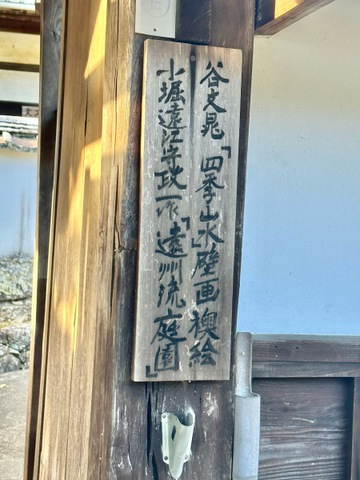 谷文晁「四季山水」壁画襖絵
小堀遠江守政一作「遠州流庭園」